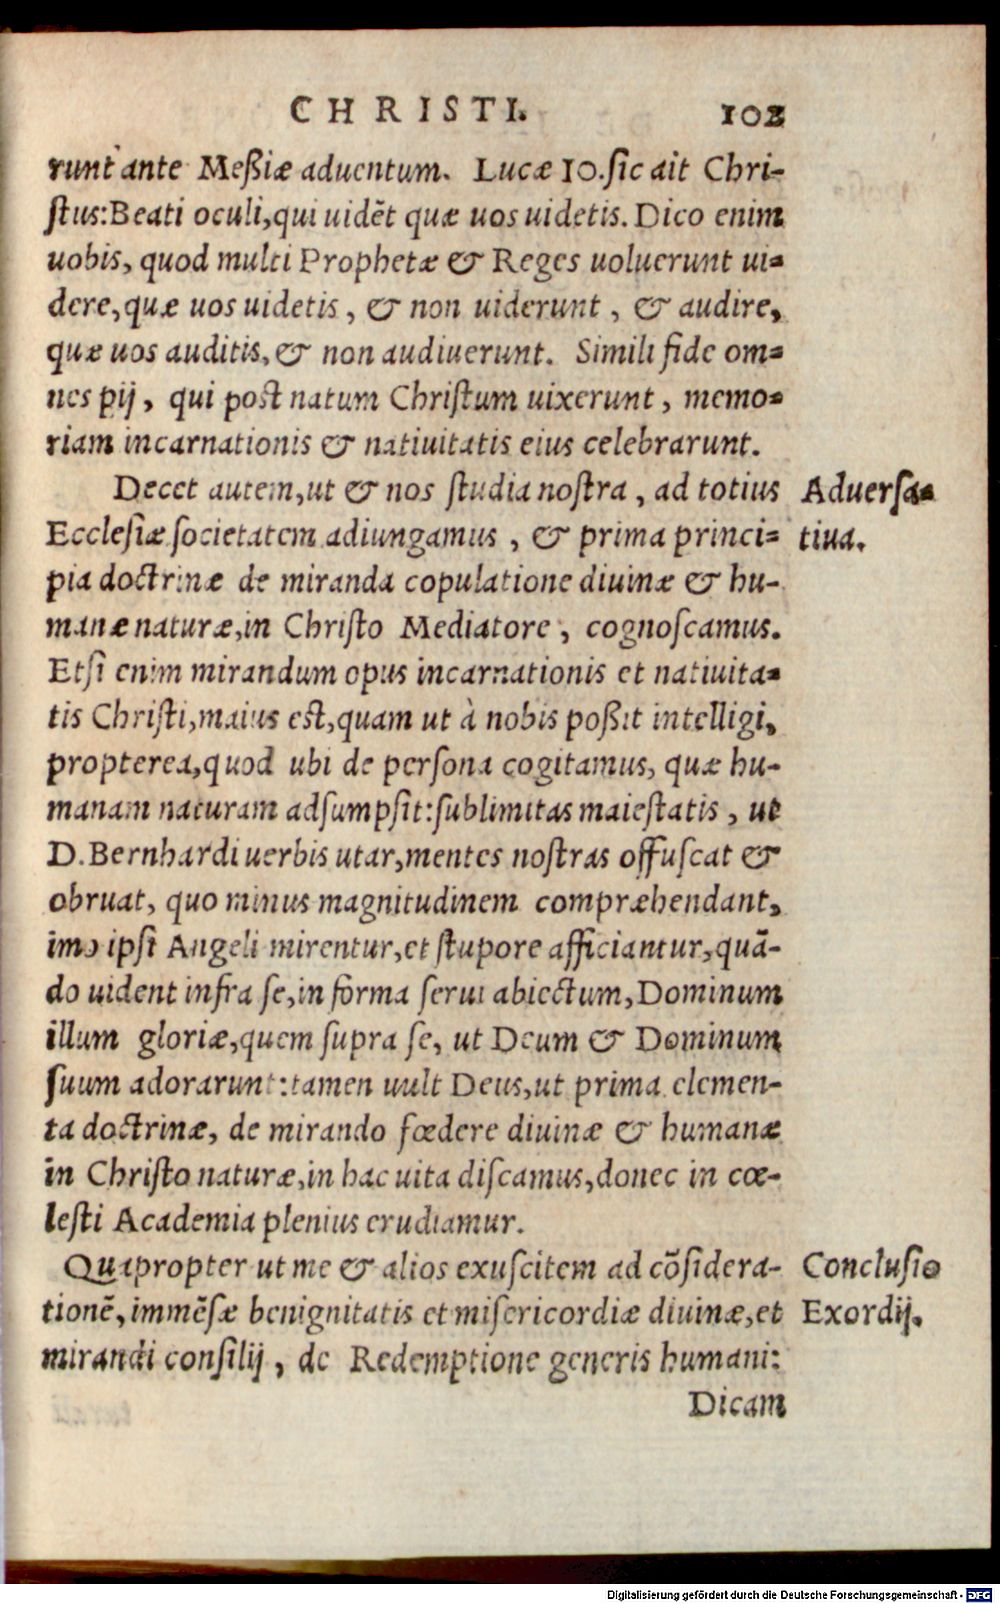 CHRISTI. 102
runt ante Meßiæ aduentum. Lucæ 10. ſic ait Chri-
ſtus: Beati oculi, qui uidēt quæ uos uidetis. Dico enim
uobis, quod multi Prophetæ & Reges uoluerunt ui-
dere, quæ uos uidetis, & non uiderunt, & audire,
quæ uos auditis, & non audiuerunt. Simili fide om-
nes pij, qui poſt natum Chriſtum uixerunt, memo-
riam incarnationis & natiuitatis eius celebrarunt.
Decet autem, ut & nos ſtudia noſtra, ad totius
Aduerſa-
Eccleſiæ ſocietatem adiungamus, & prima princi-
tiua.
pia doctrinæ de miranda copulatione diuinæ & hu-
manæ naturæ, in Chriſto Mediatore, cognoſcamus.
Etſi enim mirandum opus incarnationis et natiuita-
tis Chriſti, maius eſt, quam ut à nobis poßit intelligi,
propterea, quod ubi de perſona cogitamus, quæ hu-
manam naturam adſumpſit: ſublimitas maieſtatis, ut
D. Bernhardi uerbis utar, mentes noſtras offuſcat &
obruat, quo minus magnitudinem compræhendant,
imo ipſi Angeli mirentur, et ſtupore afficiantur, quā-
do uident infra ſe, in forma ſerui abiectum, Dominum
illum gloriæ, quem ſupra ſe, ut Deum & Dominum
ſuum adorarunt: tamen uult Deus, ut prima elemen-
ta doctrinæ, de mirando fœdere diuinæ & humanæ
in Chriſto naturæ, in hac uita diſcamus, donec in cœ-
leſti Academia plenius erudiamur.
Quapropter ut me & alios exuſcitem ad cōſidera-
Concluſio
tionē, immēſæ benignitatis et miſericordiæ diuinæ, et
Exordij.
mirandi conſilij, de Redemptione generis humani:
Dicam
Digitalisierung gefördert durch die Deutsche Forschungsgemeinschaft - DFG